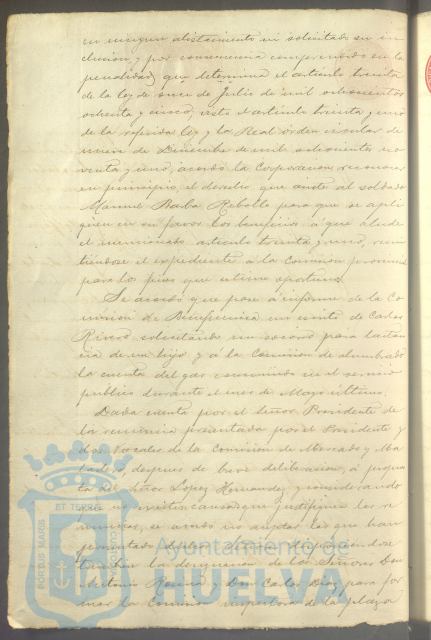 en ningun alistamiento ni solicitado su in
clusion, y por consecuencia comprendido en la
penalidad que determina el artículo treinta
de la ley de once de Julio de mil ochocientos
ochenta y cinco, visto el artículo treinta y uno
de la referida ley y la Real órden circular de
nueve de Diciembre de mil ochocientos no
venta y uno, acordó la Corporacion reconocer
en principio, el derecho que asiste al soldado
Manuel Barba Rebollo para que se apli
quen en su favor los beneficios á que alude
el mencionado artículo treinta y uno, remi
tiéndose el expediente á la Comision provincial
para los fines que estime oportuno.
Se acordó que pase á informe de la Co
mision de Beneficencia un escrito de Carlos
Rincó solicitando un socorro para lactan
cia de un hijo y á la Comision de alumbrado
la cuenta del gas consumido en el servicio
publico durante el mes de Mayo último.
Dada cuenta por el Señor Presidente de
la renuncia presentada por el Presidente y
dos Vocales de la Comision de Mercado y Ma
tadero, despues de breve deliberacion, á propues
ta del Señor Lopez Hernandez y considerando
que no existen causas que justifiquen las re
nuncias, se acordó no aceptar las que han
presentado dichos Señores,
tambien la designacion de los Señores Don
Antonio y Don Carlos Diaz para for
mar la Comision inspectora de la plaza
PORTUS MARIS ET TERRE CUSTODIA
Ayuntamiento de
HUELVA